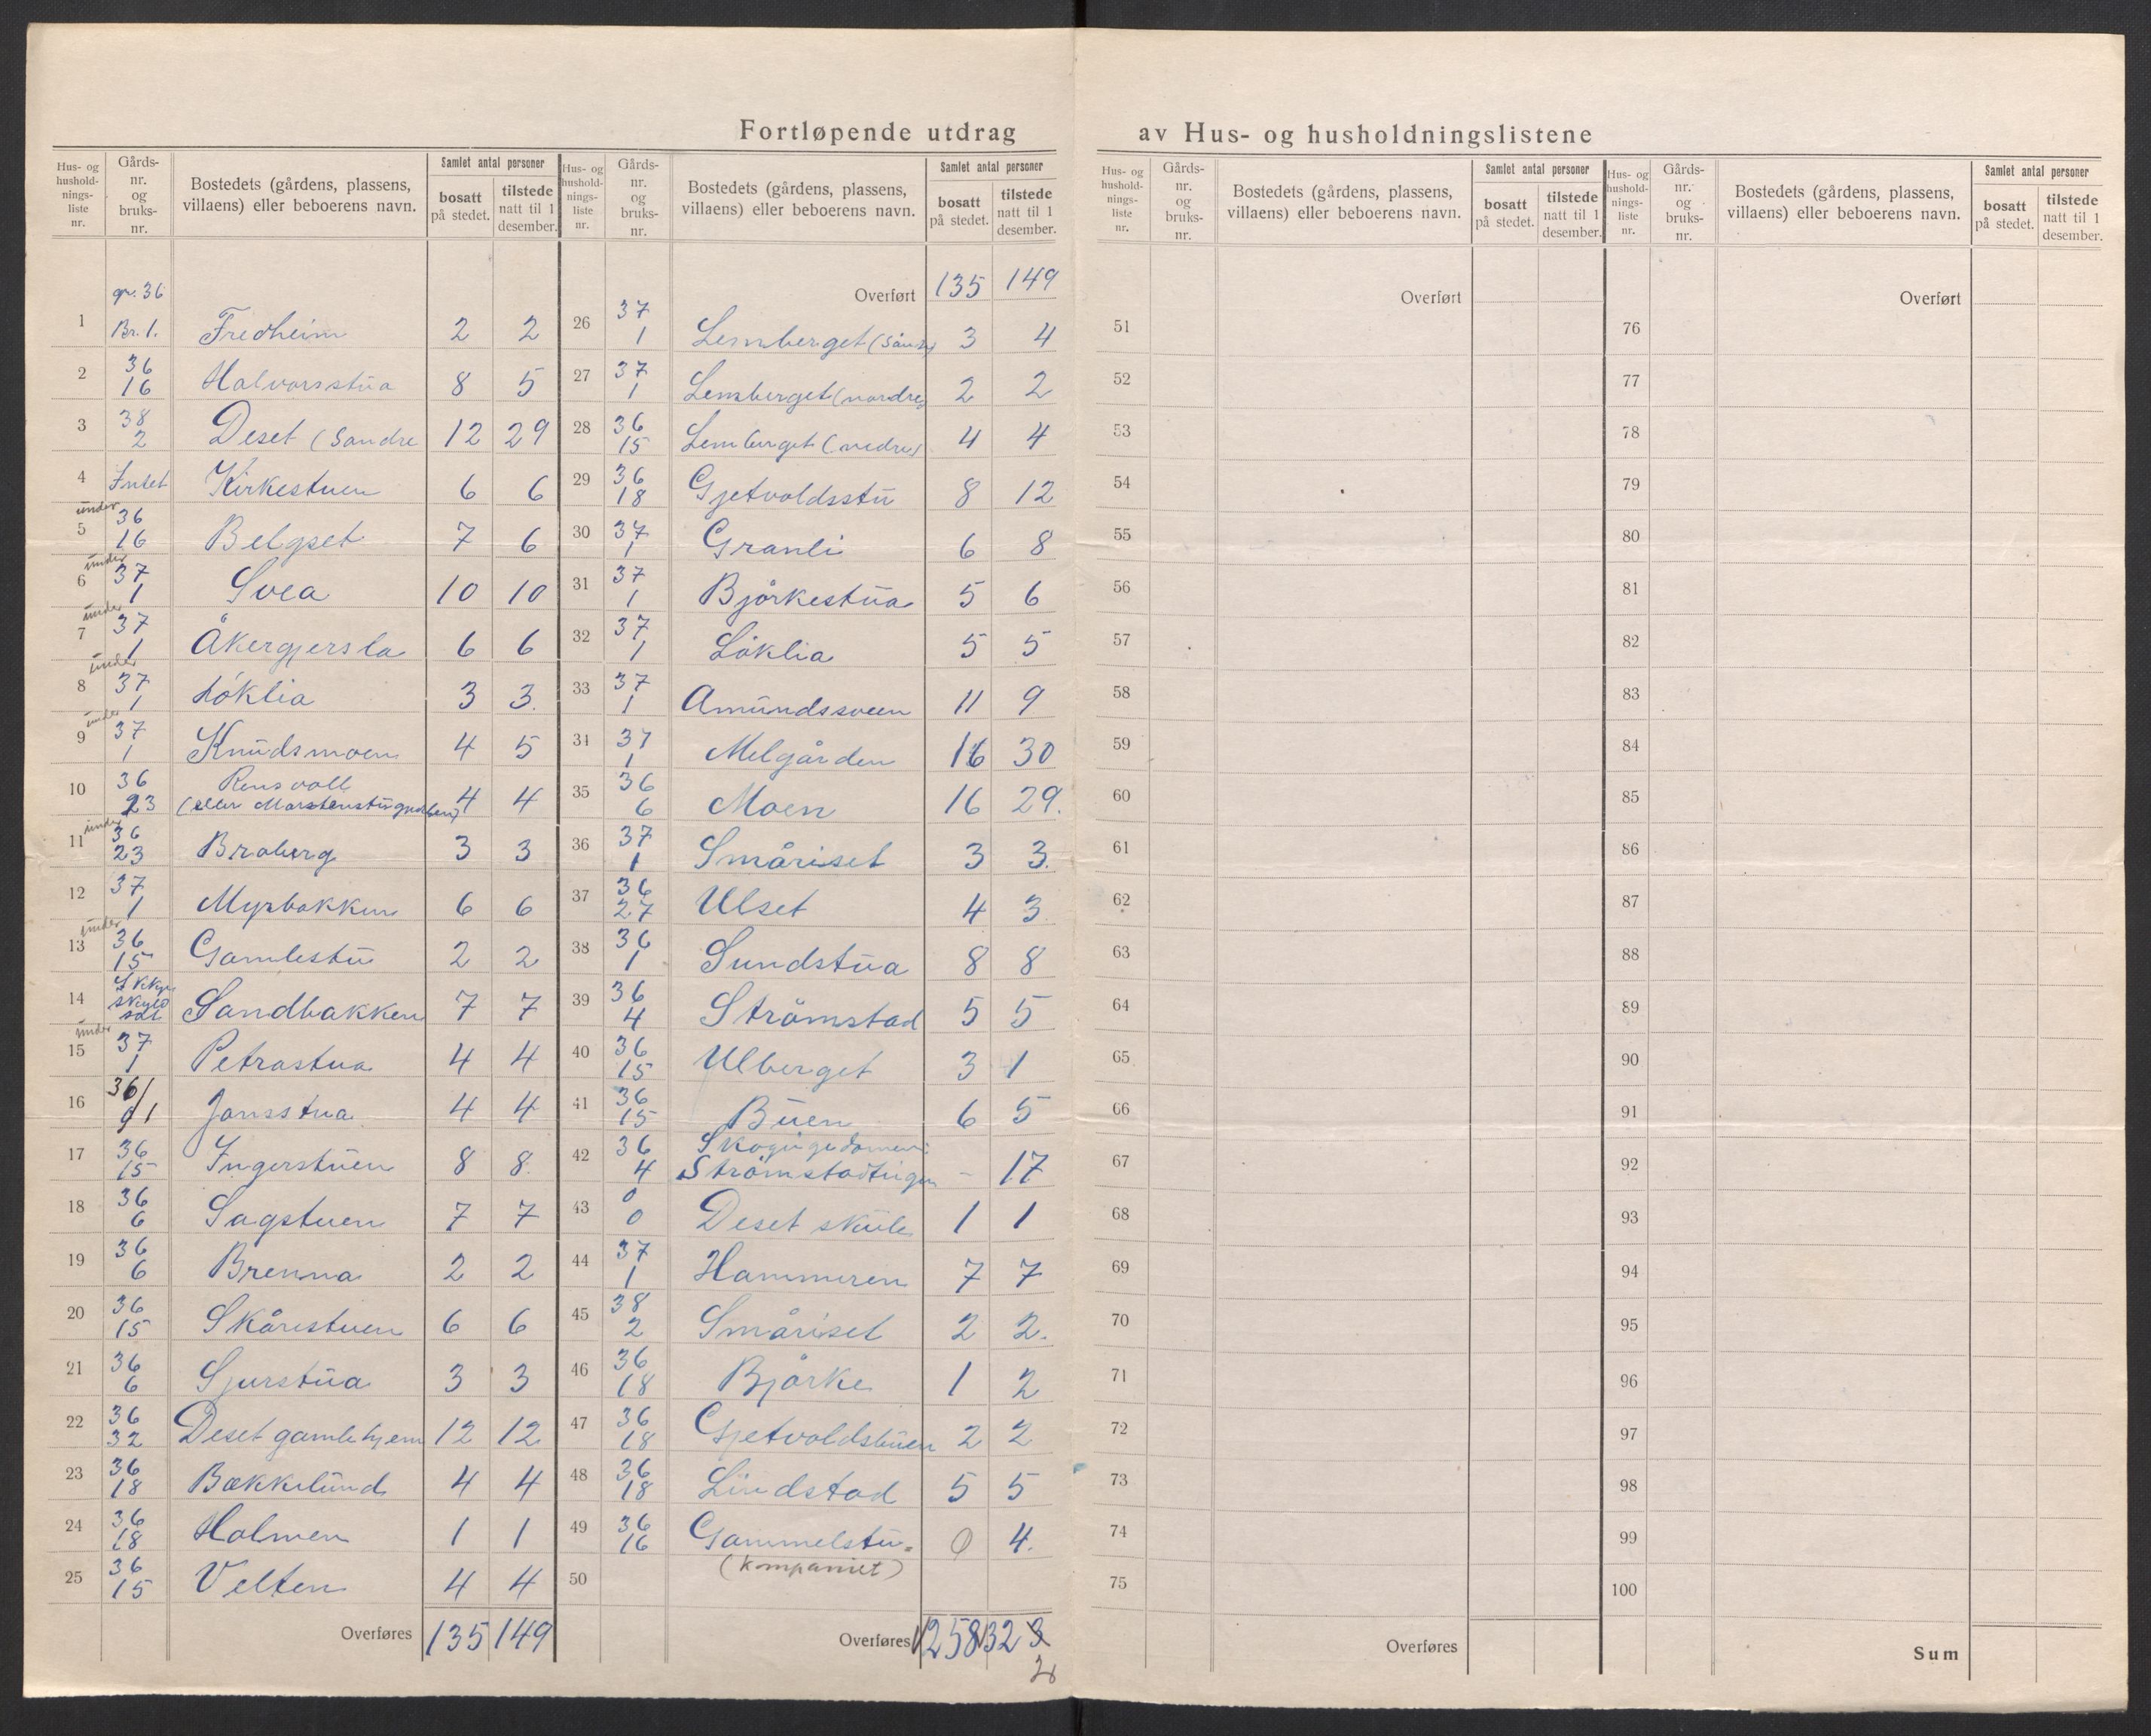 Fortløpende utdrag av Hus- og husholdningslistene
Hus- og hushold- nings- liste nr. Gårds- nr. og bruks- nr. Bostedets (gårdens, plassens, villaens) eller beboerens navn. Samlet antal personer bosatt på stedet. tilstede natt til 1 desember.
Hus- og hushold- nings- liste nr. Gårds- nr. og bruks- nr. Bostedets (gårdens, plassens, villaens) eller beboerens navn. Samlet antal personer bosatt på stedet. tilstede natt til 1 desember.
1 gr. 36 Br. 1. Fredheim 2 2
2 36 16 Halvorsstua 8 5
3 38 2 Deset (Søndre 12 29
4 Intet Kirkestuen 6 6
5 under 36 16 Belgset 7 6
6 under 37 1 Svea 10 10
7 under 37 1 Åkergjersla 6 6
8 under 37 1 Løklia 3 3.
9 under 37 1 Knudsmoen 4 5
10 36 23 Rensvoll 4 4
11 under 36 23 Braberg 3 3
12 37 1 Myrbakken 6 6
13 under 36 15 Gamlestu 2 2
14 Ikke skyld sat Sandbakken 7 7
15 under 37 1 Petrastua 4 4
16 36/1 Jansstua 4 4
17 36 15 Ingerstuen 8 8.
18 36 6 Sagstuen 7 7
19 36 6 Brenna 2 2
20 36 15 Skårestuen 6 6
21 36 6 Sjurstua 3 3
22 36 32 Deset gamlehjem 12 12
23 36 18 Bækkelund 4 4
24 36 18 Holmen 1 1
25 36 15 Velten 4 4
Overføres 135 149
Overført 135 149
26 37 1 Lemberget (Søndre) 3 4
27 37 1 Lemberget (nordre) 2 2
28 36 15 Lemberget (nedre) 4 4
29 36 18 Gjetvoldsstu 8 12
30 37 1 Granli 6 8
31 37 1 Bjørkestua 5 6
32 37 1 Løklia 5 5
33 37 1 Amundssveen 11 9
34 37 1 Melgården 16 30
35 36 6 Moen 16 29.
36 37 1 Småriset 3 3.
37 36 27 Ulset 4 3
38 36 1 Sundstua 8 8
39 36 4 Strömstad 5 5
40 36 15 Ulberget 3 1
41 36 15 Buen 6 5
42 36 4 Strömstadtrigen - 17
43 0 0 Deset skule 1 1
44 37 1 Hammeren 7 7
45 38 2 Småriset 2 2.
46 36 18 Bjørke 1 2
47 36 18 Gjetvoldstuen 2 2
48 36 18 Lindstad 5 5
49 36 16 Gammelstu- 0 4.
50 (kompaniet)
Overføres 258 323
2
Hus- og hushold- nings- liste nr. Gårds- nr. og bruks- nr. Bostedets (gårdens, plassens, villaens) eller beboerens navn. Samlet antal personer bosatt på stedet. tilstede natt til 1 desember.
Hus- og hushold- nings- liste nr. Gårds- nr. og bruks- nr. Bostedets (gårdens, plassens, villaens) eller beboerens navn. Samlet antal personer bosatt på stedet. tilstede natt til 1 desember.
Overført Overført
51 76
52 77
53 78
54 79
55 80
56 81
57 82
58 83
59 84
60 85
61 86
62 87
63 88
64 89
65 90
66 91
67 92
68 93
69 94
70 95
71 96
72 97
73 98
74 99
75 100
Overføres Sum